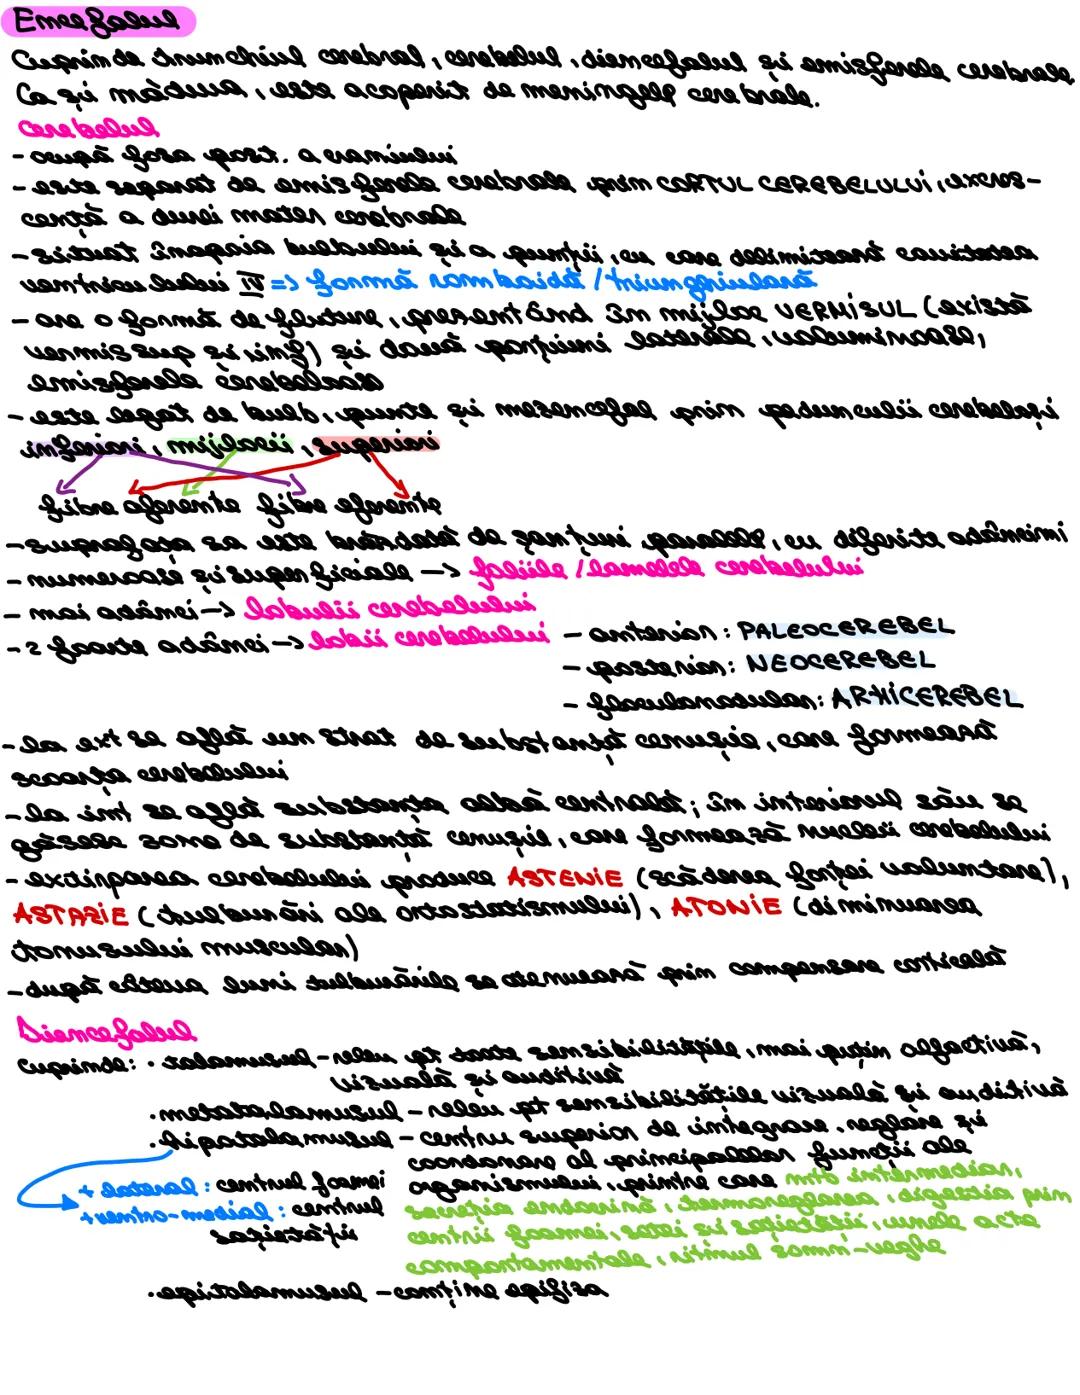 Encefalul
Cuprinde trunchiul cerebral, cerebelul, diencefalul și emisferele cerebrale
Ca și măduva, este acoperit de meningele cerebrale.
Cerebelul
- ocupă fosa post. a craniului
- este separat de emisferele cerebrale prin CORTUL CEREBELULUI, excres-
cență a durei mater cerebrale
- situat înapoia bulbului și a punții, cu care delimitează cavitatea
ventriculului IV => formă romboidă / triunghiulară
- are o formă de fluture, prezentând în mijloc VERMISUL (există
vermis sup și inf) și două porțiuni laterale, voluminoase,
emisferele cerebeloase
- este legat de bulb, punte și mezencefal prin pedunculii cerebeloși
inferiori, mijlocii, superiori
fibre aferente fibre eferente
- suprafața sa este brăzdată de șanțuri paralele, cu diferite adâncimi
- numeroase și superficiale -> foliile / lamelele cerebelului
- mai adânci -> lobulii cerebelului
- 2 foarte adânci -> lobii cerebelului - anterior: PALEOCEREBEL
- posterior: NEOCEREBEL
- floculonodular: ARHICEREBEL
- la ext se află un strat de substanță cenușie, care formează
scoarța cerebelului
- la int se află substanța albă centrală; în interiorul său se
găsesc zone de substanță cenușie, care formează nucleii cerebelului
- extirparea cerebelului produce ASTENIE (scăderea forței voluntare),
ASTAZIE (tulburări ale ortostatismului), ATONIE (diminuarea
tonusului muscular)
- după câteva luni tulburările se atenuează prin compensare corticală
Diencefalul
cuprinde: • talamusul - releu pt toate sensibilitățile, mai puțin olfactivă,
vizuală și auditivă
• metatalamusul - releu pt sensibilitățile vizuală și auditivă
• hipotalamusul - centru superior de integrare, reglare și
coordonare al principalelor funcții ale
organismului, printre care mtb intermediar,
+ lateral: centrul foamei
secreția endocrină, termoreglarea, digestia prin
+ ventro-medial: centrul
centrii foamei, setei și sațietății, unele acte
sațietății
comportamentale, ritmul somn-veghe
• epitalamusul - conține epifiza